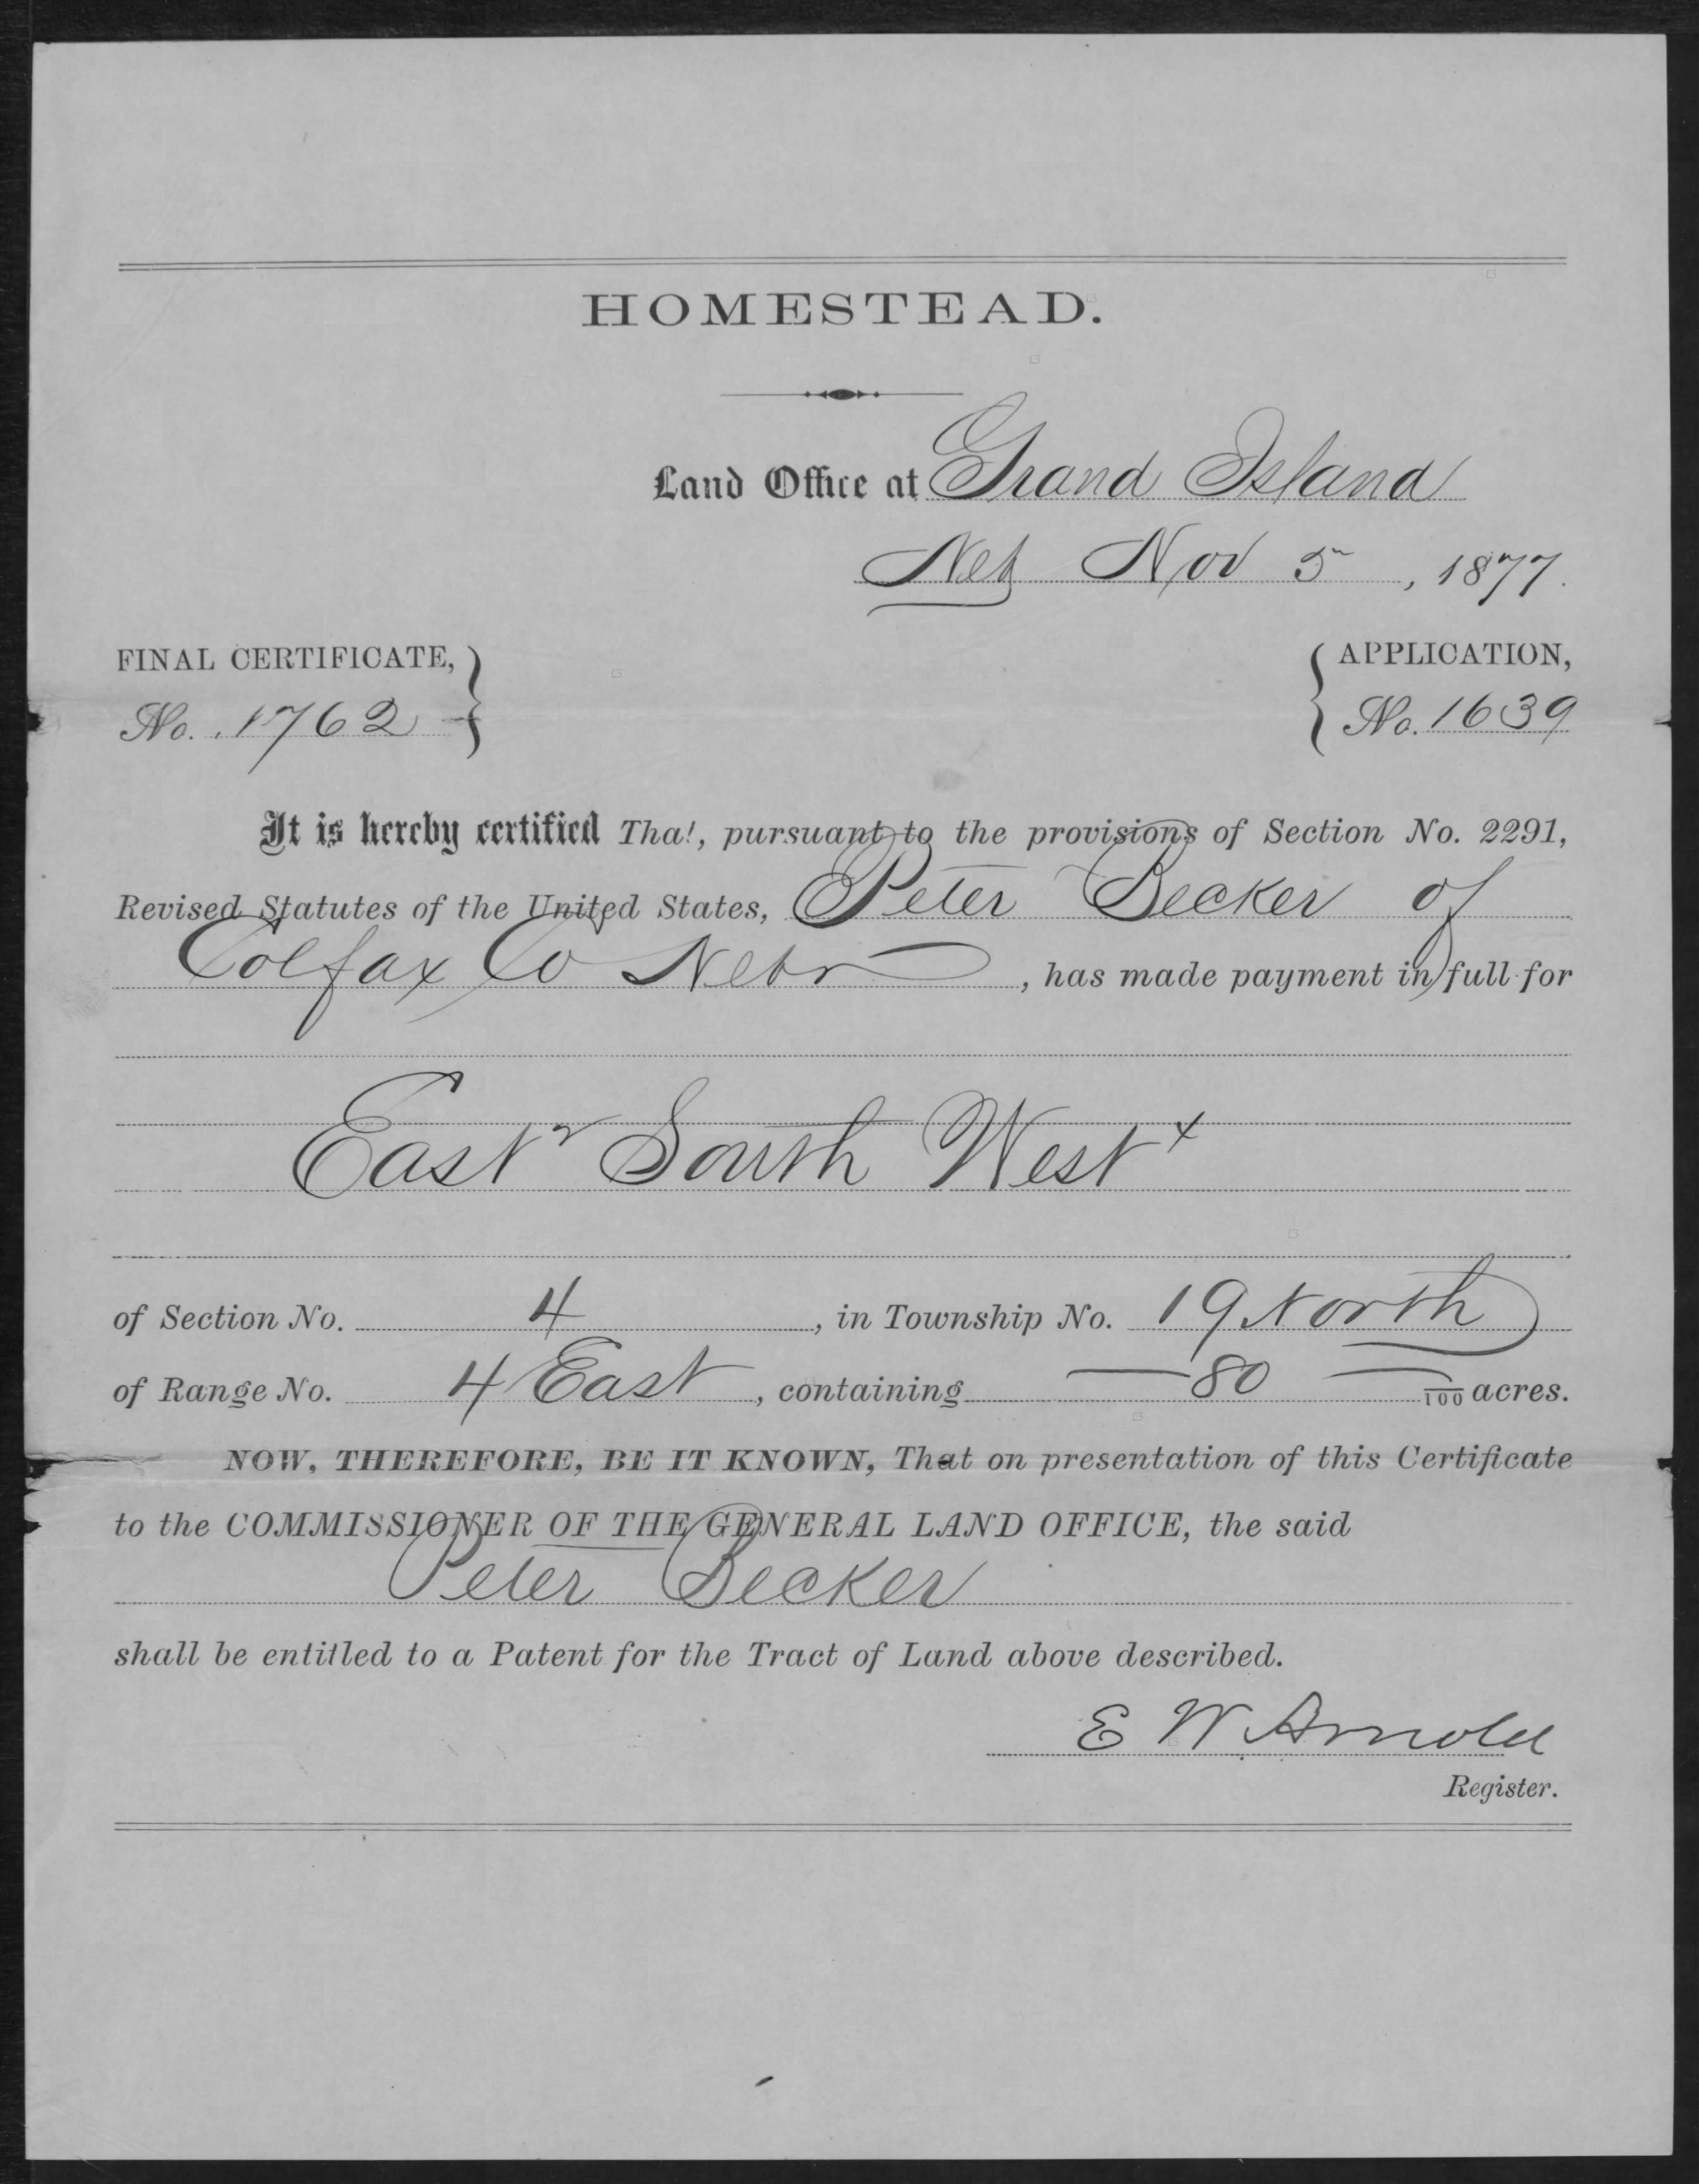 HOMESTEAD.
Land Office at Grand Island
Neb Nov 5, 1877.
FINAL CERTIFICATE,
No. 1762
APPLICATION,
No. 1639
It is hereby certified That, pursuant to the provisions of Section No. 2291,
Revised Statutes of the United States, Peter Becker of
Colfax Co Nebr, has made payment in full for
East 2 South West 4
of Section No. 4, in Township No. 19 North
of Range No. 4 East, containing 80 /100 acres.
NOW, THEREFORE, BE IT KNOWN, That on presentation of this Certificate
to the COMMISSIONER OF THE GENERAL LAND OFFICE, the said
Peter Becker
shall be entitled to a Patent for the Tract of Land above described.
E W Arnold
Register.